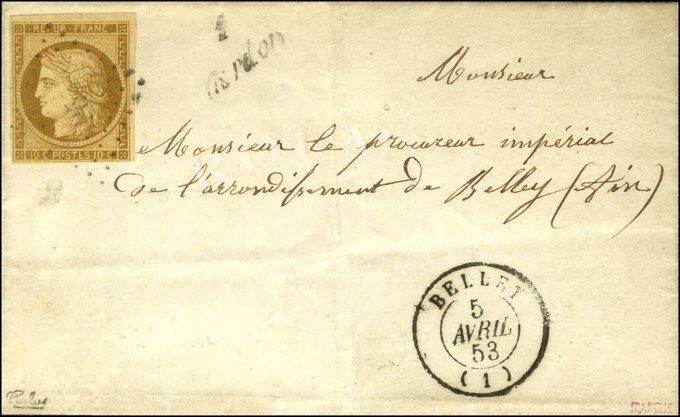 REPUB. FRANC.
10 C. POSTES 10 C.
1
Cerdon
Monsieur
Monsieur le procureur impérial
de l'arrondissement de Belley (Ain)
BELLEY
5
AVRIL
53
(1)